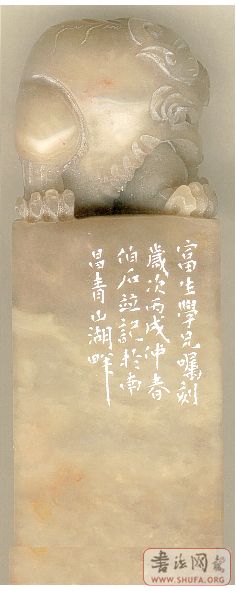 富生學兄囑刻
歲次丙戌仲春
伯石並記於南
昌青山湖畔
書法网
WWW.SHUFA.ORG